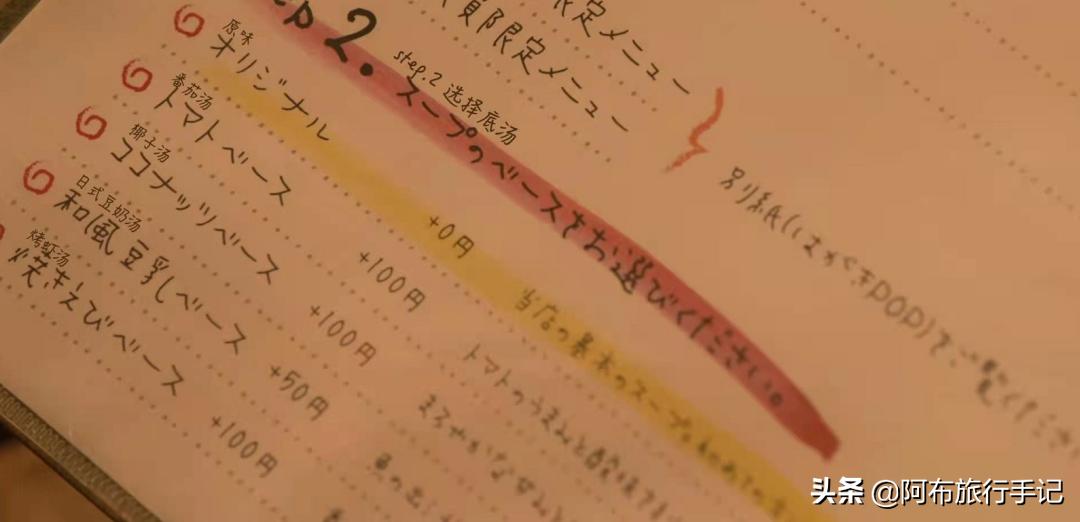 限定メニュー
限定メニュー
別紙(はがきPOP)でご覧ください
step.2 选择底汤
ep 2. スープのベースをお選びください。
原味
オリジナル +0円 当店の基本のスープ
番茄汤
トマトベース +100円 トマトのうまみと酸味
椰子汤
ココナッツベース +100円 まろやかな
日式豆奶汤
和風豆乳しベース +50円
烤虾汤
焼きえびベース +100円
头条 @阿布旅行手记